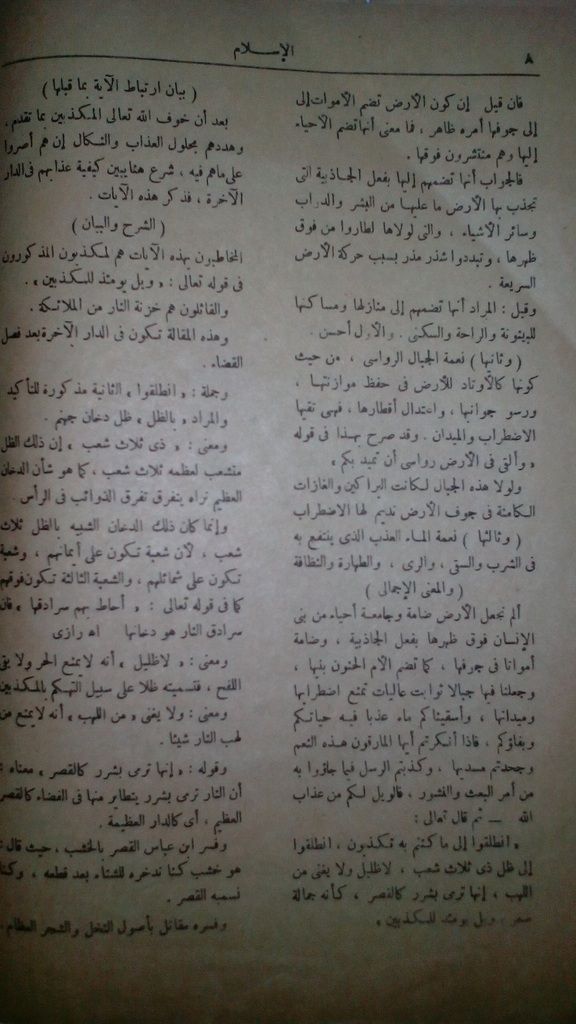 ٨
الإسلام
فان قيل إن كون الأرض تضم الأموات إلى
إلى جوفها أمره ظاهر ، فما معنى أنها تضم الأحياء
إليها وهم منتشرون فوقها .
فالجواب أنها تضمهم إليها بفعل الجاذبية التى
تجذب بها الأرض ما عليها من البشر والدواب
وسائر الأشياء ، والتى لولاها لطاروا من فوق
ظهرها ، وتبددوا شذر مذر بسبب حركة الأرض
السريعة .
وقيل : المراد أنها تضمهم إلى منازلها ومساكنها
للبيتوتة والراحة والسكنى . والأول أحسن .
( وثانيها ) نعمة الجبال الرواسى ، من حيث
كونها كالأوتاد للأرض فى حفظ موازنتها ،
ورسو جوانبها ، واعتدال أقطارها ، فهى تقيها
الاضطراب والميدان . وقد صرح بهذا فى قوله
« وألقى فى الأرض رواسى أن تميد بكم »
ولولا هذه الجبال لكانت البراكين والغازات
الكامنة فى جوف الأرض تديم لها الاضطراب
( وثالثها ) نعمة الماء العذب الذى ينتفع به
فى الشرب والسقى ، والرى ، والطهارة والنظافة
( والمعنى الإجمالى )
ألم نجعل الأرض ضامة وجامعة أحياء من بنى
الإنسان فوق ظهرها بفعل الجاذبية ، وضامة
أمواتا فى جوفها ، كما تضم الأم الحنون بنيها ،
وجعلنا فيها جبالا ثوابت عاليات تمنع اضطرابها
وميدانها ، وأسقيناكم ماء عذبا فيه حياتكم
وبقاؤكم ، فاذا أنكرتم أيها المارقون هذه النعم
وجحدتم مسديها ، وكذبتم الرسل فيما جاؤوا به
من أمر البعث والنشور ، فالويل لكم من عذاب
الله — ثم قال تعالى :
« انطلقوا إلى ما كنتم به تكذبون ، انطلقوا
إلى ظل ذى ثلاث شعب ، لاظليل ولا يغنى من
اللهب ، إنها ترمى بشرر كالقصر ، كأنه جمالة
صفر ، ويل يومئذ للمكذبين »
( بيان ارتباط الآية بما قبلها )
بعد أن خوف الله تعالى المكذبين بما تقدم ،
وهددهم بحلول العذاب والنكال إن هم أصروا
على ماهم فيه ، شرع هنا يبين كيفية عذابهم فى الدار
الآخرة ، فذكر هذه الآيات .
( الشرح والبيان )
المخاطبون بهذه الآيات هم المكذبون المذكورون
فى قوله تعالى : « ويل يومئذ للمكذبين » .
والقائلون هم خزنة النار من الملائكة .
وهذه المقالة تكون فى الدار الآخرة بعد فصل
القضاء .
وجملة : « انطلقوا » الثانية مذكورة للتأكيد
والمراد « بالظل » ظل دخان جهنم .
ومعنى : « ذى ثلاث شعب » إن ذلك الظل
متشعب لعظمه ثلاث شعب ، كما هو شأن الدخان
العظيم تراه يتفرق تفرق الذوائب فى الرأس .
وإنما كان ذلك الدخان الشبيه بالظل ثلاث
شعب ، لأن شعبة تكون على أيمانهم ، وشعبة
تكون على شمائلهم ، والشعبة الثالثة تكون فوقهم
كما فى قوله تعالى : « أحاط بهم سرادقها » فان
سرادق النار هو دخانها اه رازى
ومعنى : « لاظليل » أنه لا يمنع الحر ولا يقى
اللفح ، فتسميته ظلا على سبيل التهكم بالمكذبين
ومعنى : ولا يغنى « من اللهب » أنه لا يمنع من
لهب النار شيئا .
وقوله : « إنها ترمى بشرر كالقصر » معناه :
أن النار ترمى بشرر يتطاير منها فى الفضاء كالقصر
العظيم ، أى كالدار العظيمة .
وفسر ابن عباس القصر بالخشب ، حيث قال :
هو خشب كنا ندخره للشتاء بعد قطعه ، وكنا
نسميه القصر .
وفسره مقاتل بأصول النخل والشجر العظام .